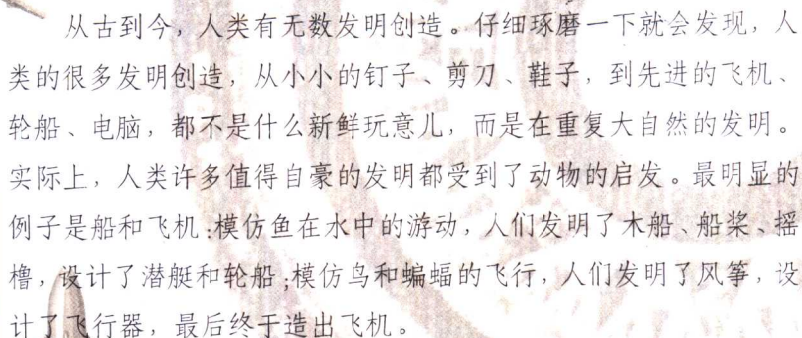 从古到今，人类有无数发明创造。仔细琢磨一下就会发现，人
类的很多发明创造，从小小的钉子、剪刀、鞋子，到先进的飞机、
轮船、电脑，都不是什么新鲜玩意儿，而是在重复大自然的发明。
实际上，人类许多值得自豪的发明都受到了动物的启发。最明显的
例子是船和飞机：模仿鱼在水中的游动，人们发明了木船、船桨、摇
橹，设计了潜艇和轮船；模仿鸟和蝙蝠的飞行，人们发明了风筝，设
计了飞行器，最后终于造出飞机。